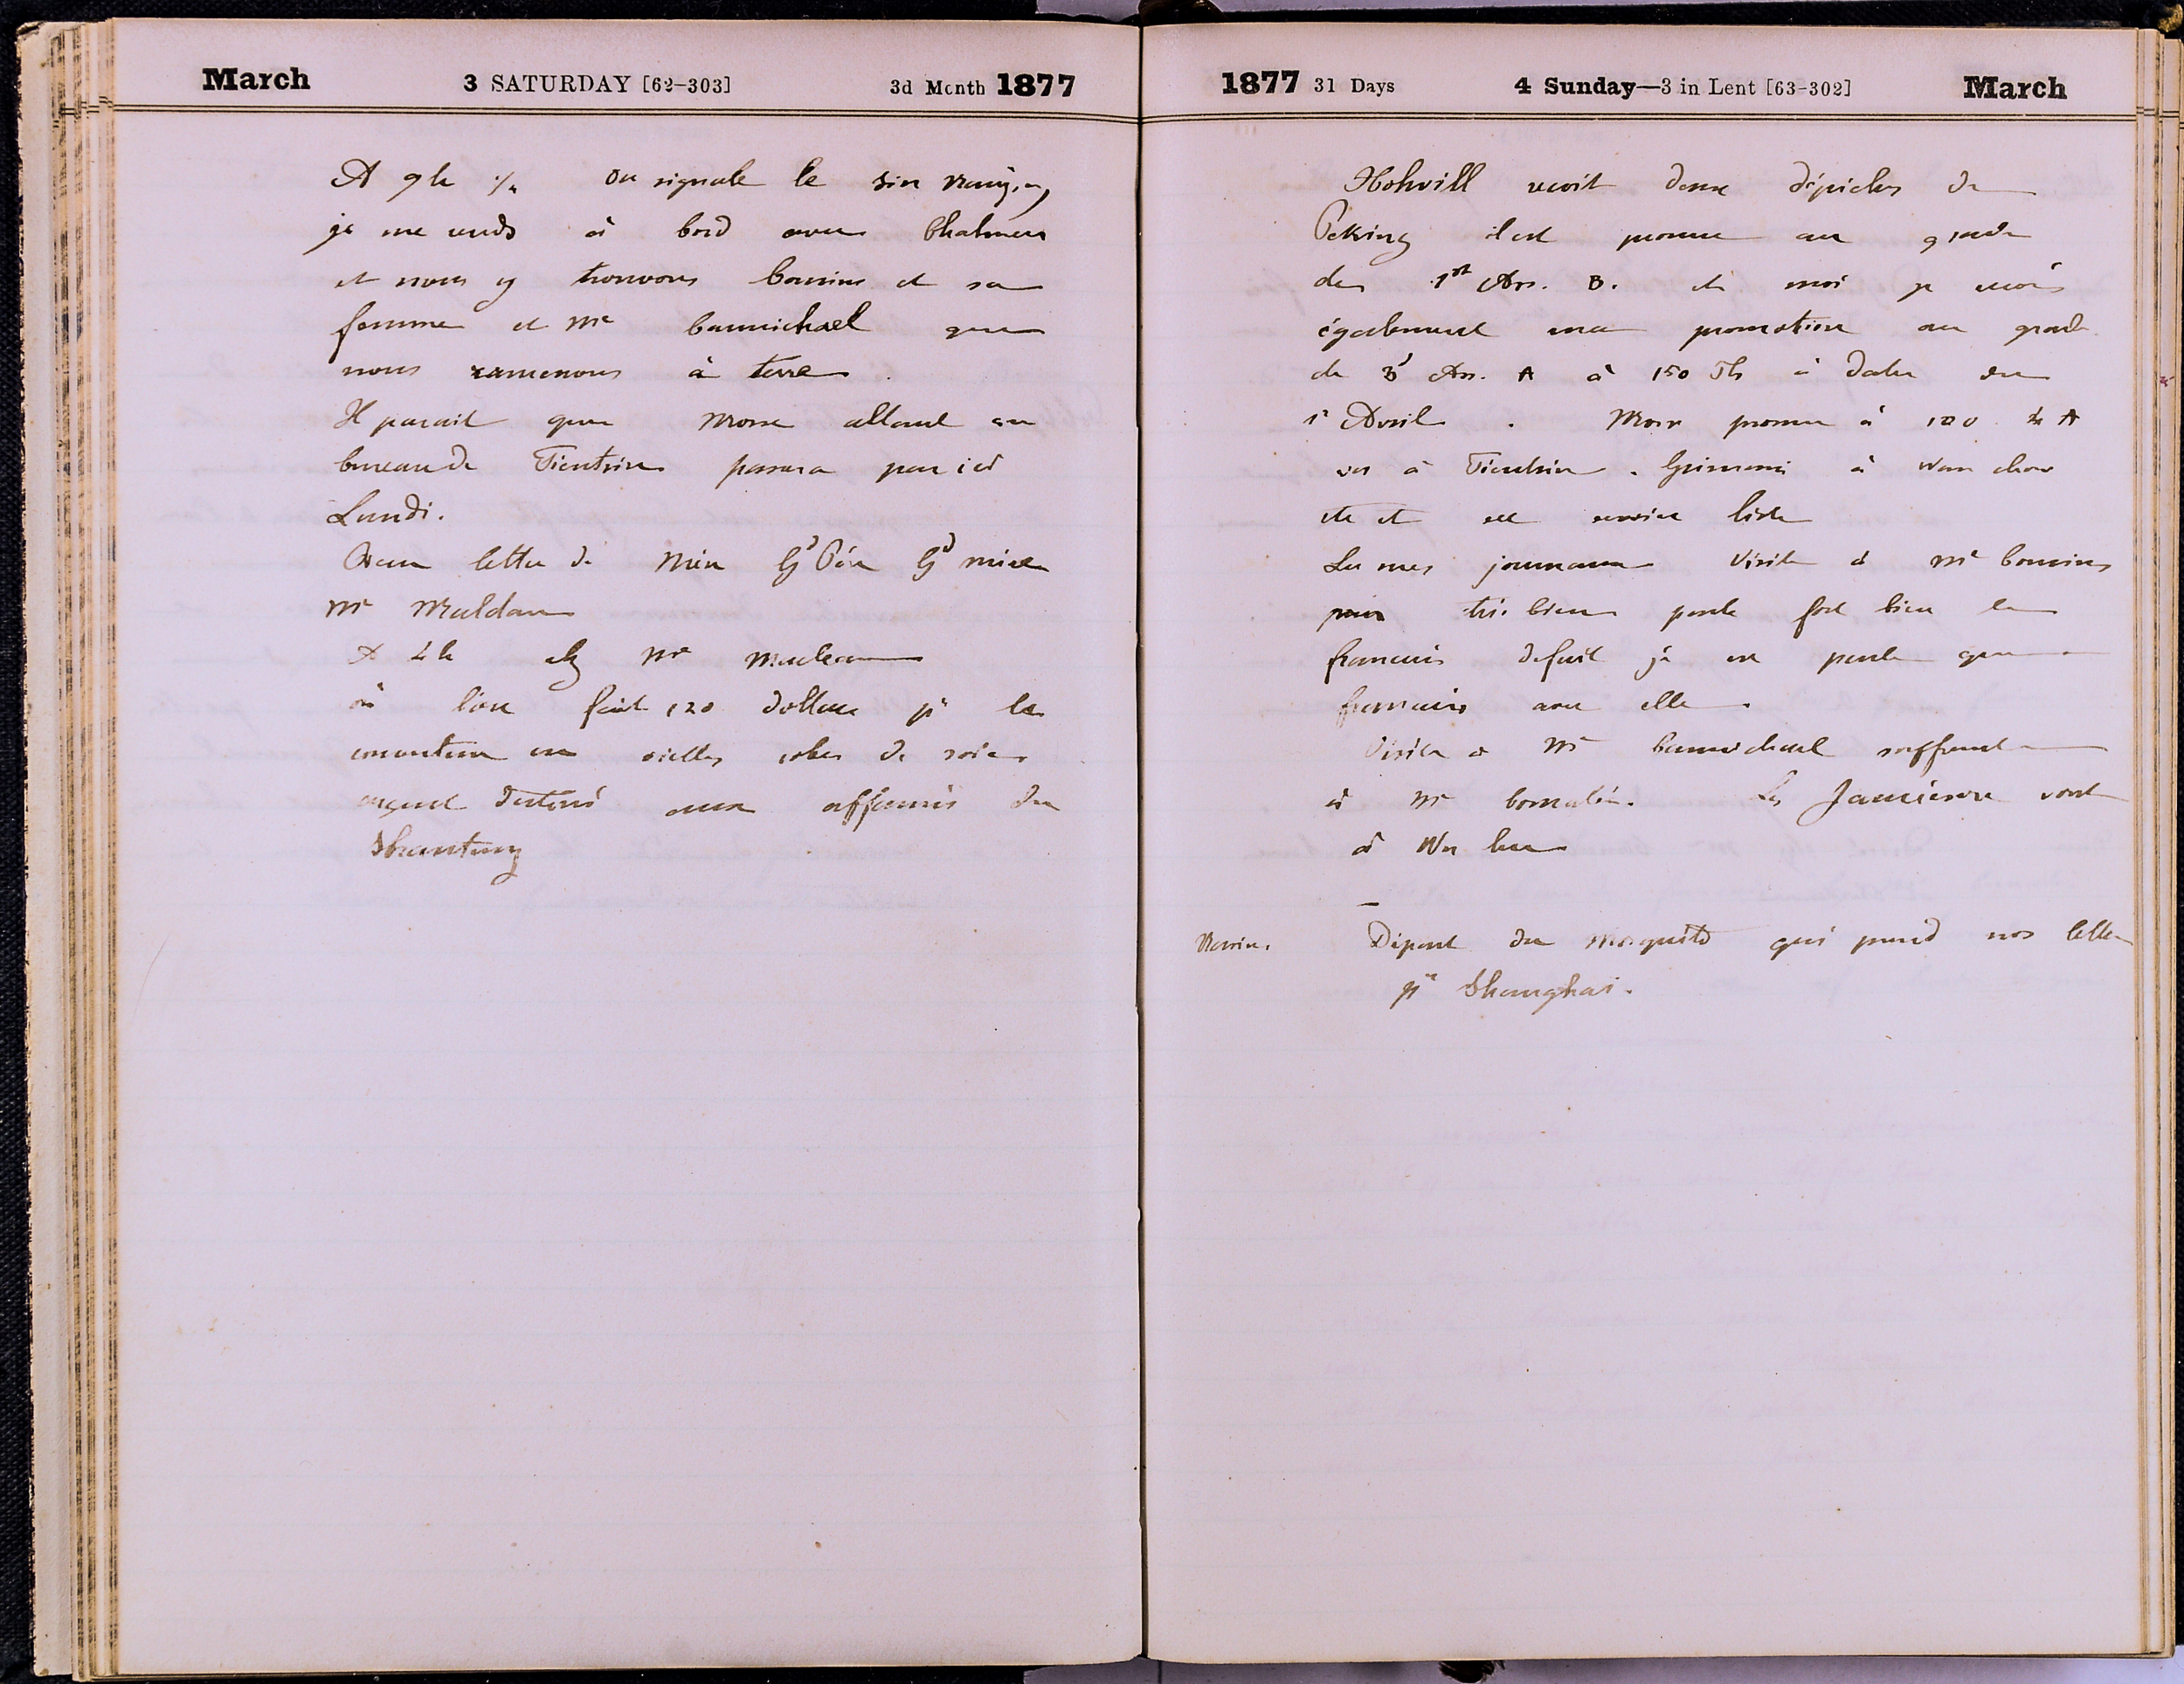 March 3 SATURDAY [62-303] 3d Month 1877
A 9h ½ on signale le Sin Nanzing
je me rends à bord avec Chalmers
et nous y trouvons Cousins et sa
femme et Mr Carmichael que
nous ramenons à terre.
Il parait que Morse allant au
bureau de Tientsin passera par ici
Lundi.
lettre de Mien Gd Père Gd mère
Mr Muldau
A 4h chez Mme Maclean
où l'on fait 120 dollars pr la
en vielles robes de soie
argent destiné aux affamés du
Shantung
1877 31 Days 4 Sunday—3 in Lent [63-302] March
Holwill recoit deux dépêches de
Peking il est promu au grade
de 1st Ass. B. et moi je recois
également ma promotion au grade
de 3d Ass. A à 150 Tls à dater du
1r Avril. Morse promu à 100 4 A
va à Tientsin. Grimani à Wen chow
etc et service liste
Lu mes journaux Visite à Me Cousins
très bien parle fort bien le
francais de fait je ne parle que
francais avec elle.
Visite à Mr Carmichael souffrant
à Me Les Jamieson vont
à Wu hu
Navires. Départ du Mosquito qui prend nos lettres
pr Shanghai.